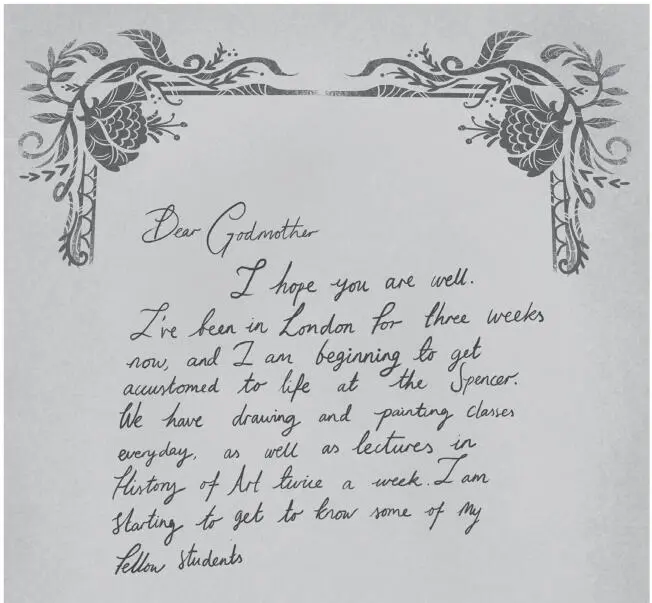 Dear Godmother
I hope you are well.
I've been in London for three weeks
now, and I am beginning to get
accustomed to life at the Spencer.
We have drawing and painting classes
everyday, as well as lectures in
History of Art twice a week. I am
starting to get to know some of my
fellow students